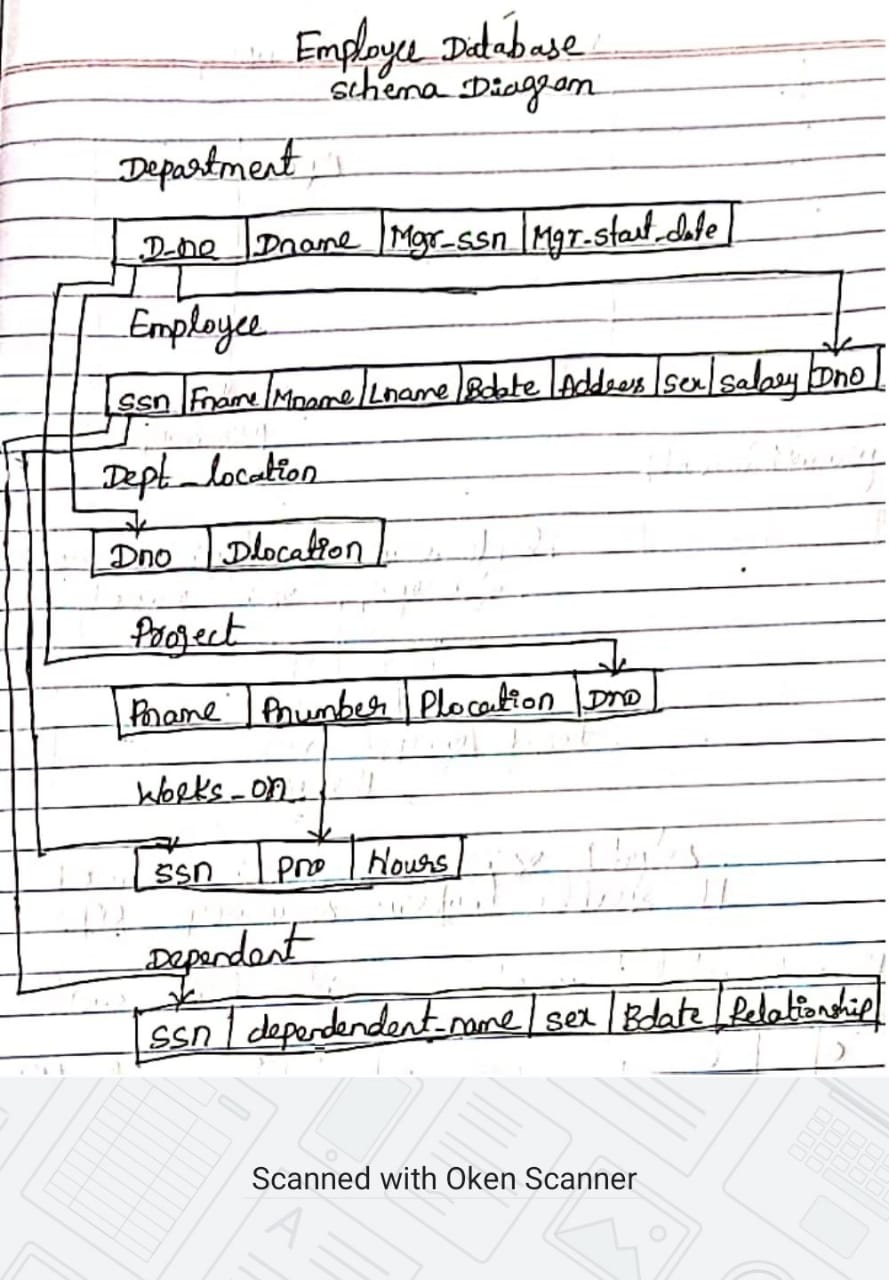 Employee Database
Schema Diagram
Department
D-no Dname Mgr-ssn Mgr-start-date
Employee
SSn Fname Mname Lname Bdate Address Sex Salary Dno
Dept_location
Dno Dlocation
Project
Pname Pnumber Plocation Dno
Works_on
SSn pno Hours
Dependant
SSn dependendent_name sex Bdate Relationship
Scanned with Oken Scanner